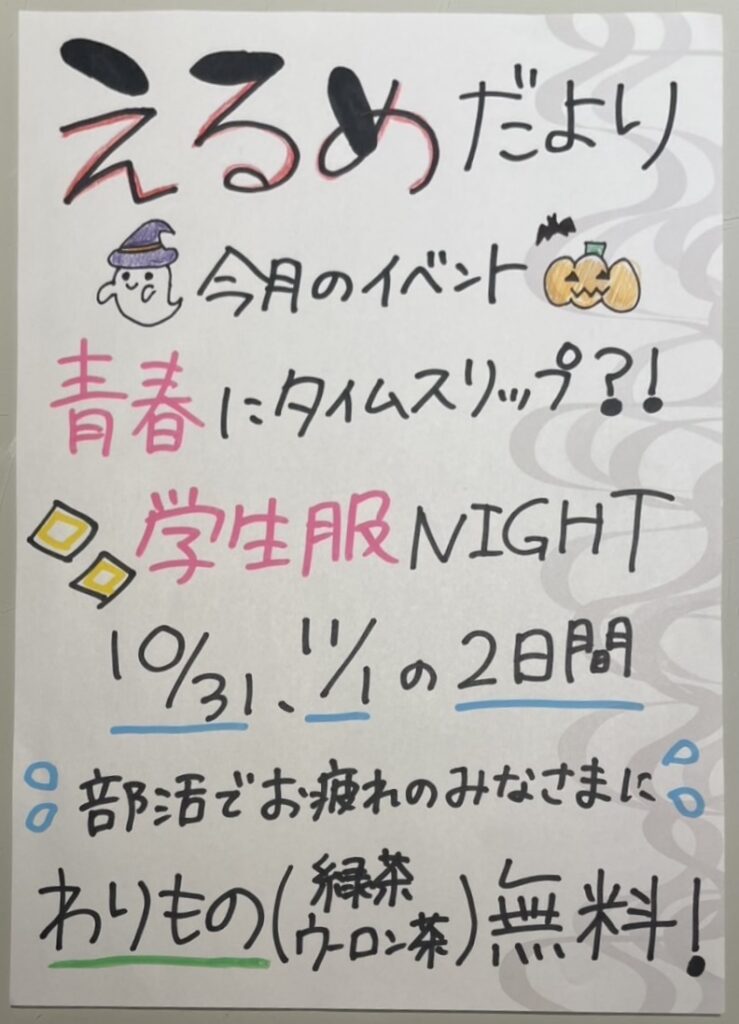 えるめだより
今月のイベント
青春にタイムスリップ?!
学生服NIGHT
10/31、11/1の2日間
部活でお疲れのみなさまに
わりもの(緑茶 ウーロン茶)無料!